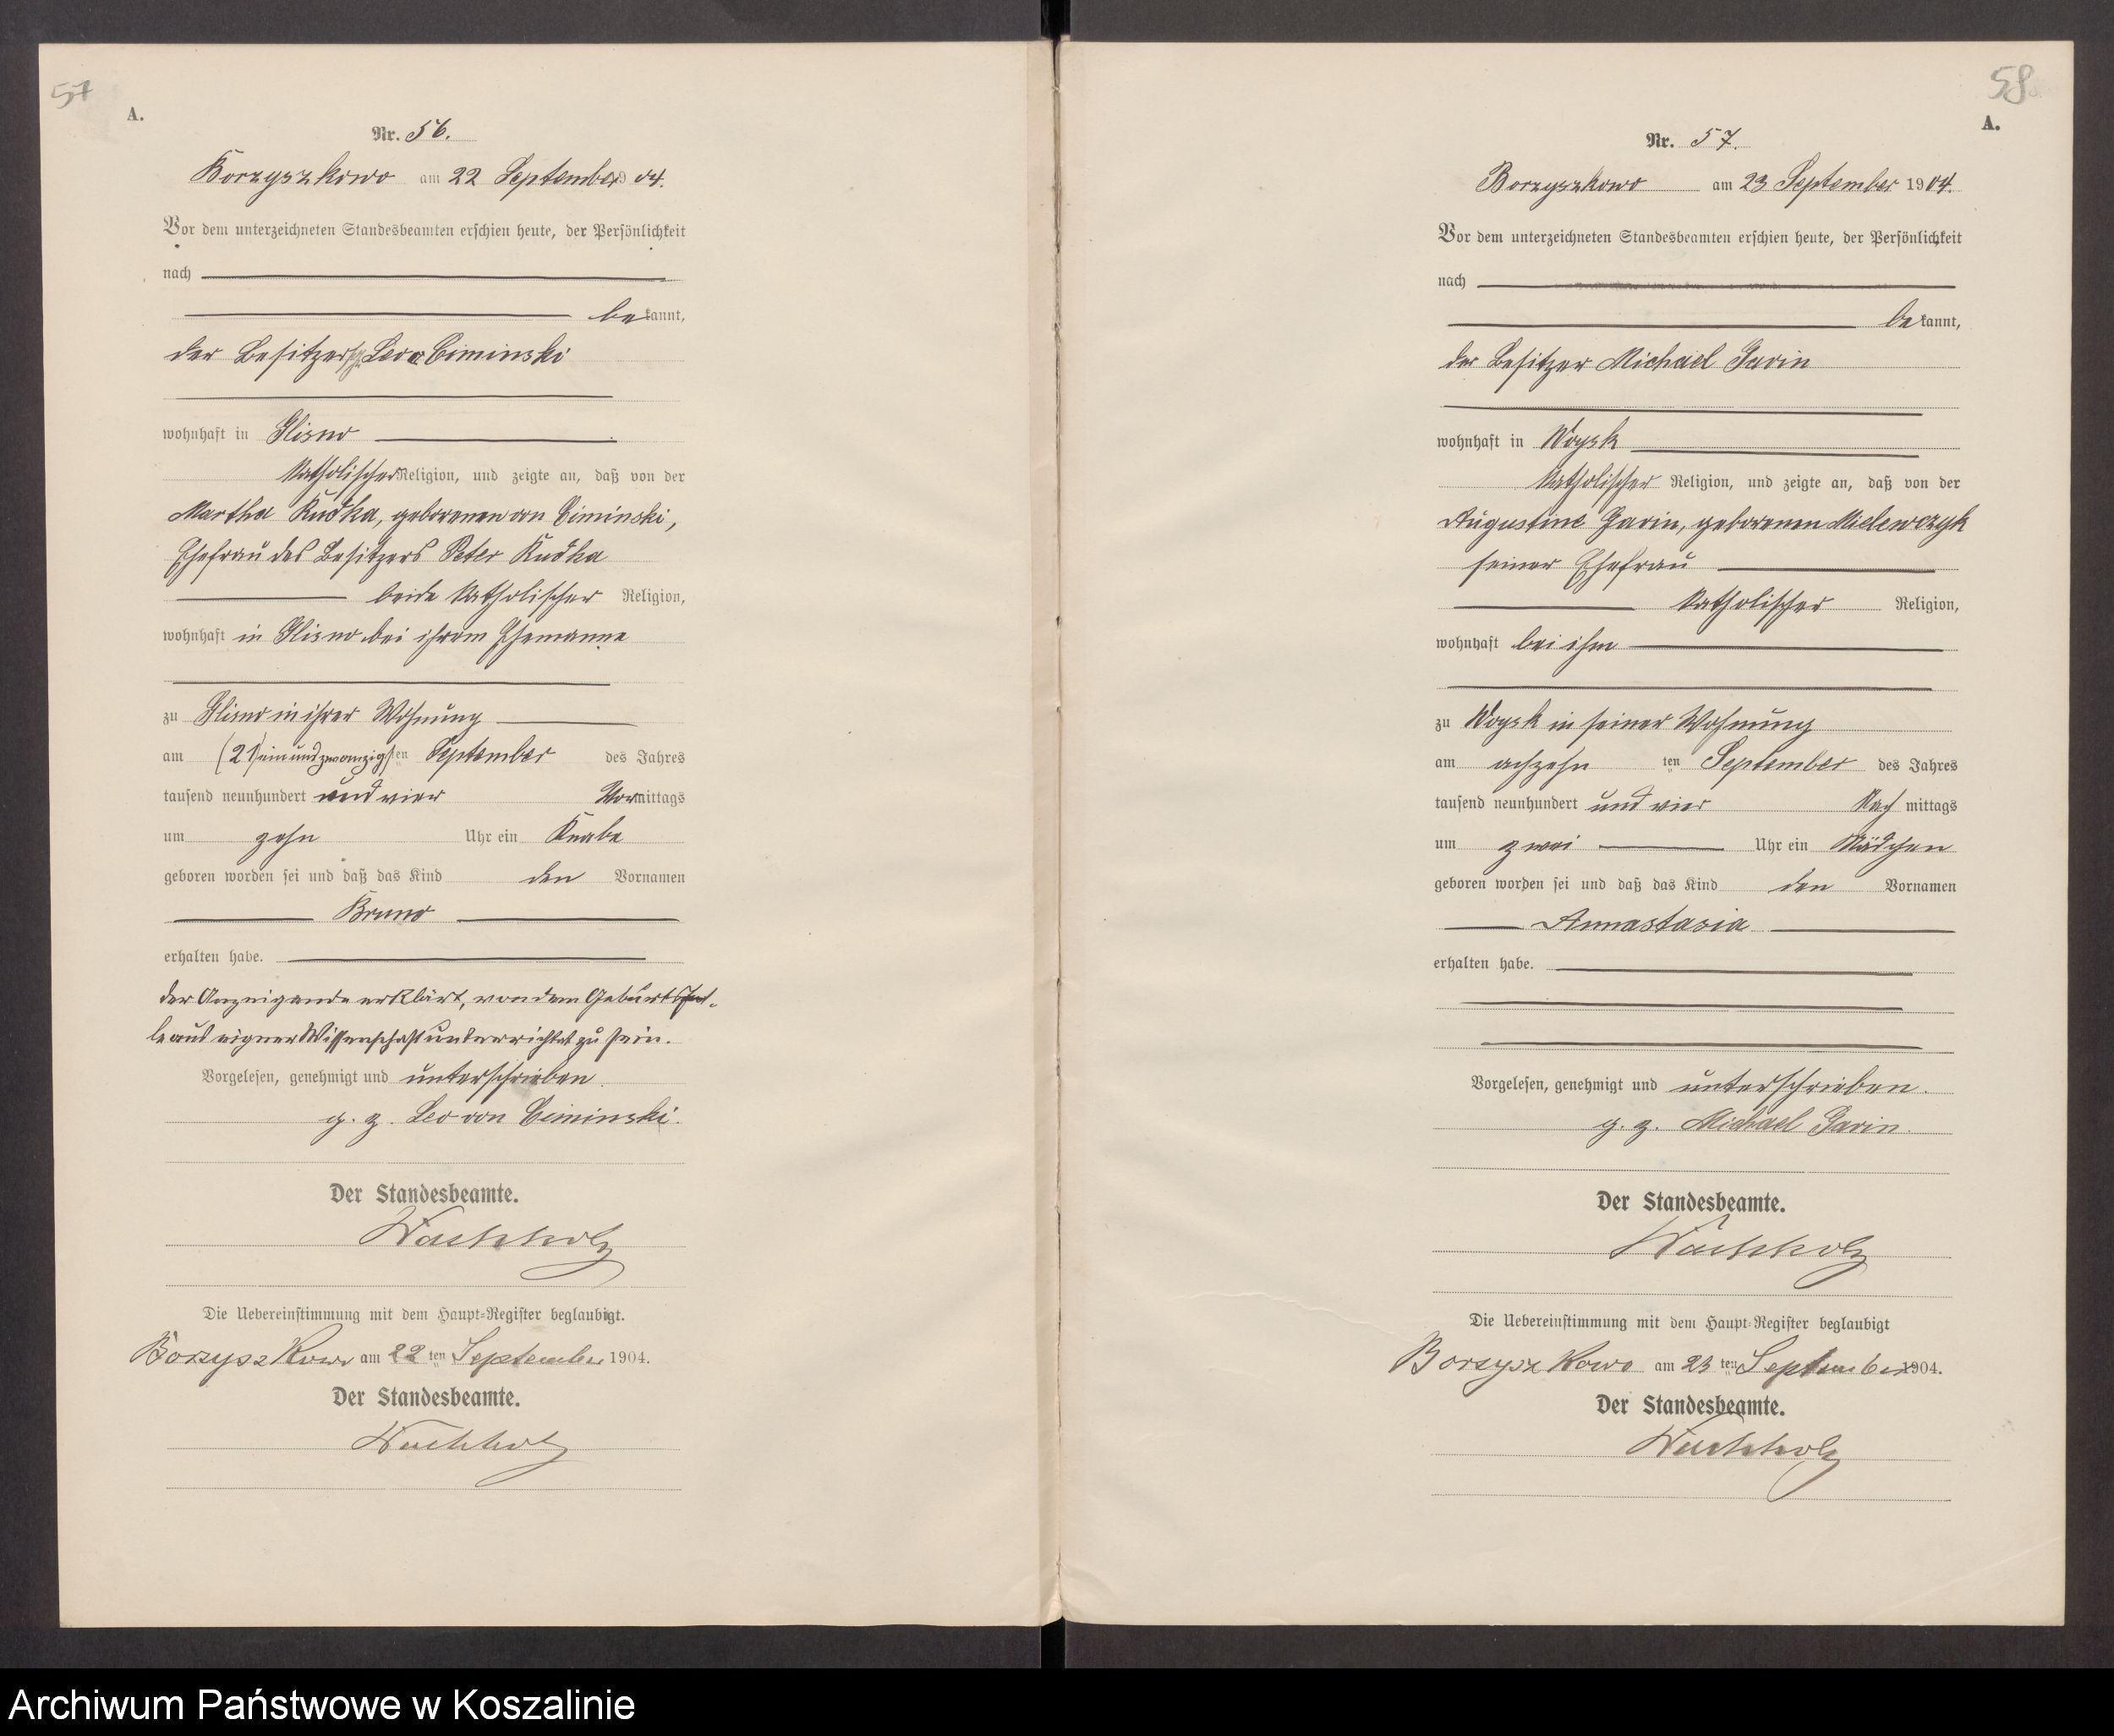 57
A.
Nr. 56.
Borzyszkowo am 22 September 1904.
Vor dem unterzeichneten Standesbeamten erschien heute, der Persönlichkeit
nach
bekannt,
der Besitzer Leo Ciminski
wohnhaft in Glisno
katholischer Religion, und zeigte an, daß von der
Martha Kudka, geborenen von Ciminski,
Ehefrau des Besitzers Peter Kudka
beide katholischer Religion,
wohnhaft in Glisno bei ihrem Ehemanne
zu Glisno in ihrer Wohnung
am (21) einundzwanzigsten September des Jahres
tausend neunhundert und vier Vormittags
um zehn Uhr ein Knabe
geboren worden sei und daß das Kind den Vornamen
Bruno
erhalten habe.
der Anzeigende erklärt, von dem Geburtsfal-
le aus eigner Wissenschaft unterrichtet zu sein.
Vorgelesen, genehmigt und unterschrieben.
g. z. Leo von Ciminski.
Der Standesbeamte.
Wachholz
Die Uebereinstimmung mit dem Haupt-Register beglaubigt.
Borzyszkowo am 22 ten September 1904.
Der Standesbeamte.
Wachholz
58
A.
Nr. 57.
Borzyszkowo am 23 September 1904.
Vor dem unterzeichneten Standesbeamten erschien heute, der Persönlichkeit
nach
bekannt,
der Besitzer Michael Garin
wohnhaft in Woysk
katholischer Religion, und zeigte an, daß von der
Augustine Garin, geborenen Mielewczyk
seiner Ehefrau
katholischer Religion,
wohnhaft bei ihm
zu Woysk in seiner Wohnung
am achzehn ten September des Jahres
tausend neunhundert und vier Nach mittags
um zwei Uhr ein Mädchen
geboren worden sei und daß das Kind den Vornamen
Annastasia
erhalten habe.
Vorgelesen, genehmigt und unterschrieben.
g. z. Michael Garin.
Der Standesbeamte.
Wachholz
Die Uebereinstimmung mit dem Haupt-Register beglaubigt
Borzyszkowo am 23 ten September 1904.
Der Standesbeamte.
Wachholz
Archiwum Państwowe w Koszalinie